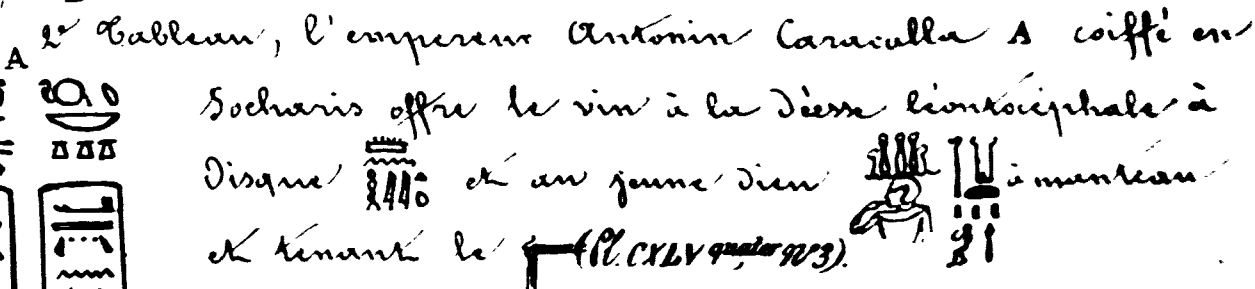 2e Tableau, l'empereur Antonin Caracalla A coiffé en
A
Socharis offre le vin à la déesse léontocéphale à
Disque et au jeune dieu à manteau
et tenant le (Pl. CXLV quater No 3).